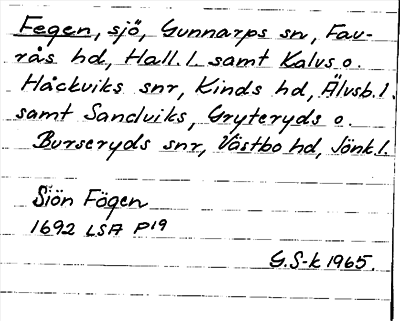 Fegen, sjö, Gunnarps sn, Fau-
rås hd, Hall. l. samt Kalvs o.
Håckviks snr, Kinds hd, Älvsb. l.
samt Sandviks, Gryteryds o.
Burseryds snr, Västbo hd, Jönk. l.
Siön Fögen
1692 LSA P19
G.S-k 1965.